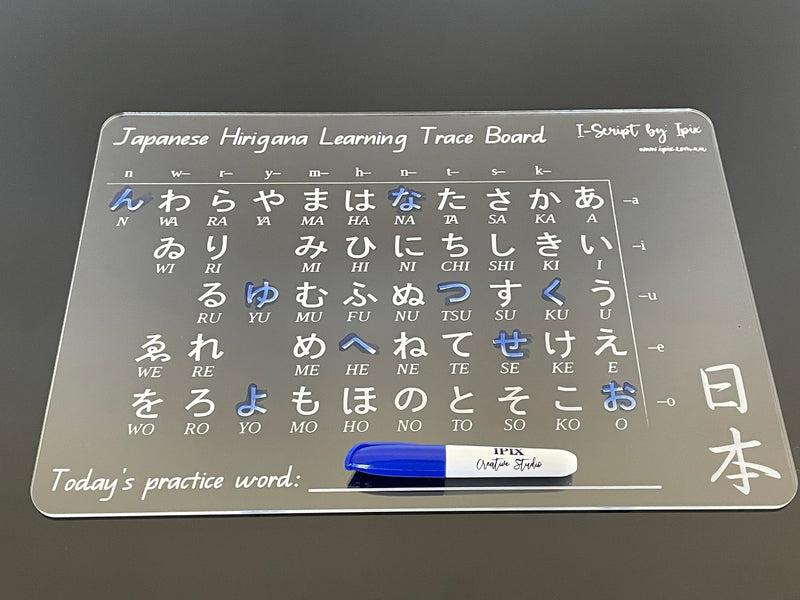 Japanese Hirigana Learning Trace Board
I-Script by Ipix
www.ipix.com.au
n w- r- y- m- h- n- t- s- k-
ん わ ら や ま は な た さ か あ -a
N WA RA YA MA HA NA TA SA KA A
ゐ り み ひ に ち し き い -i
WI RI MI HI NI CHI SHI KI I
る ゆ む ふ ぬ つ す く う -u
RU YU MU FU NU TSU SU KU U
ゑ れ め へ ね て せ け え -e
WE RE ME HE NE TE SE KE E
を ろ よ も ほ の と そ こ お -o
WO RO YO MO HO NO TO SO KO O
日
本
IPIX
Creative Studio
Today's practice word: